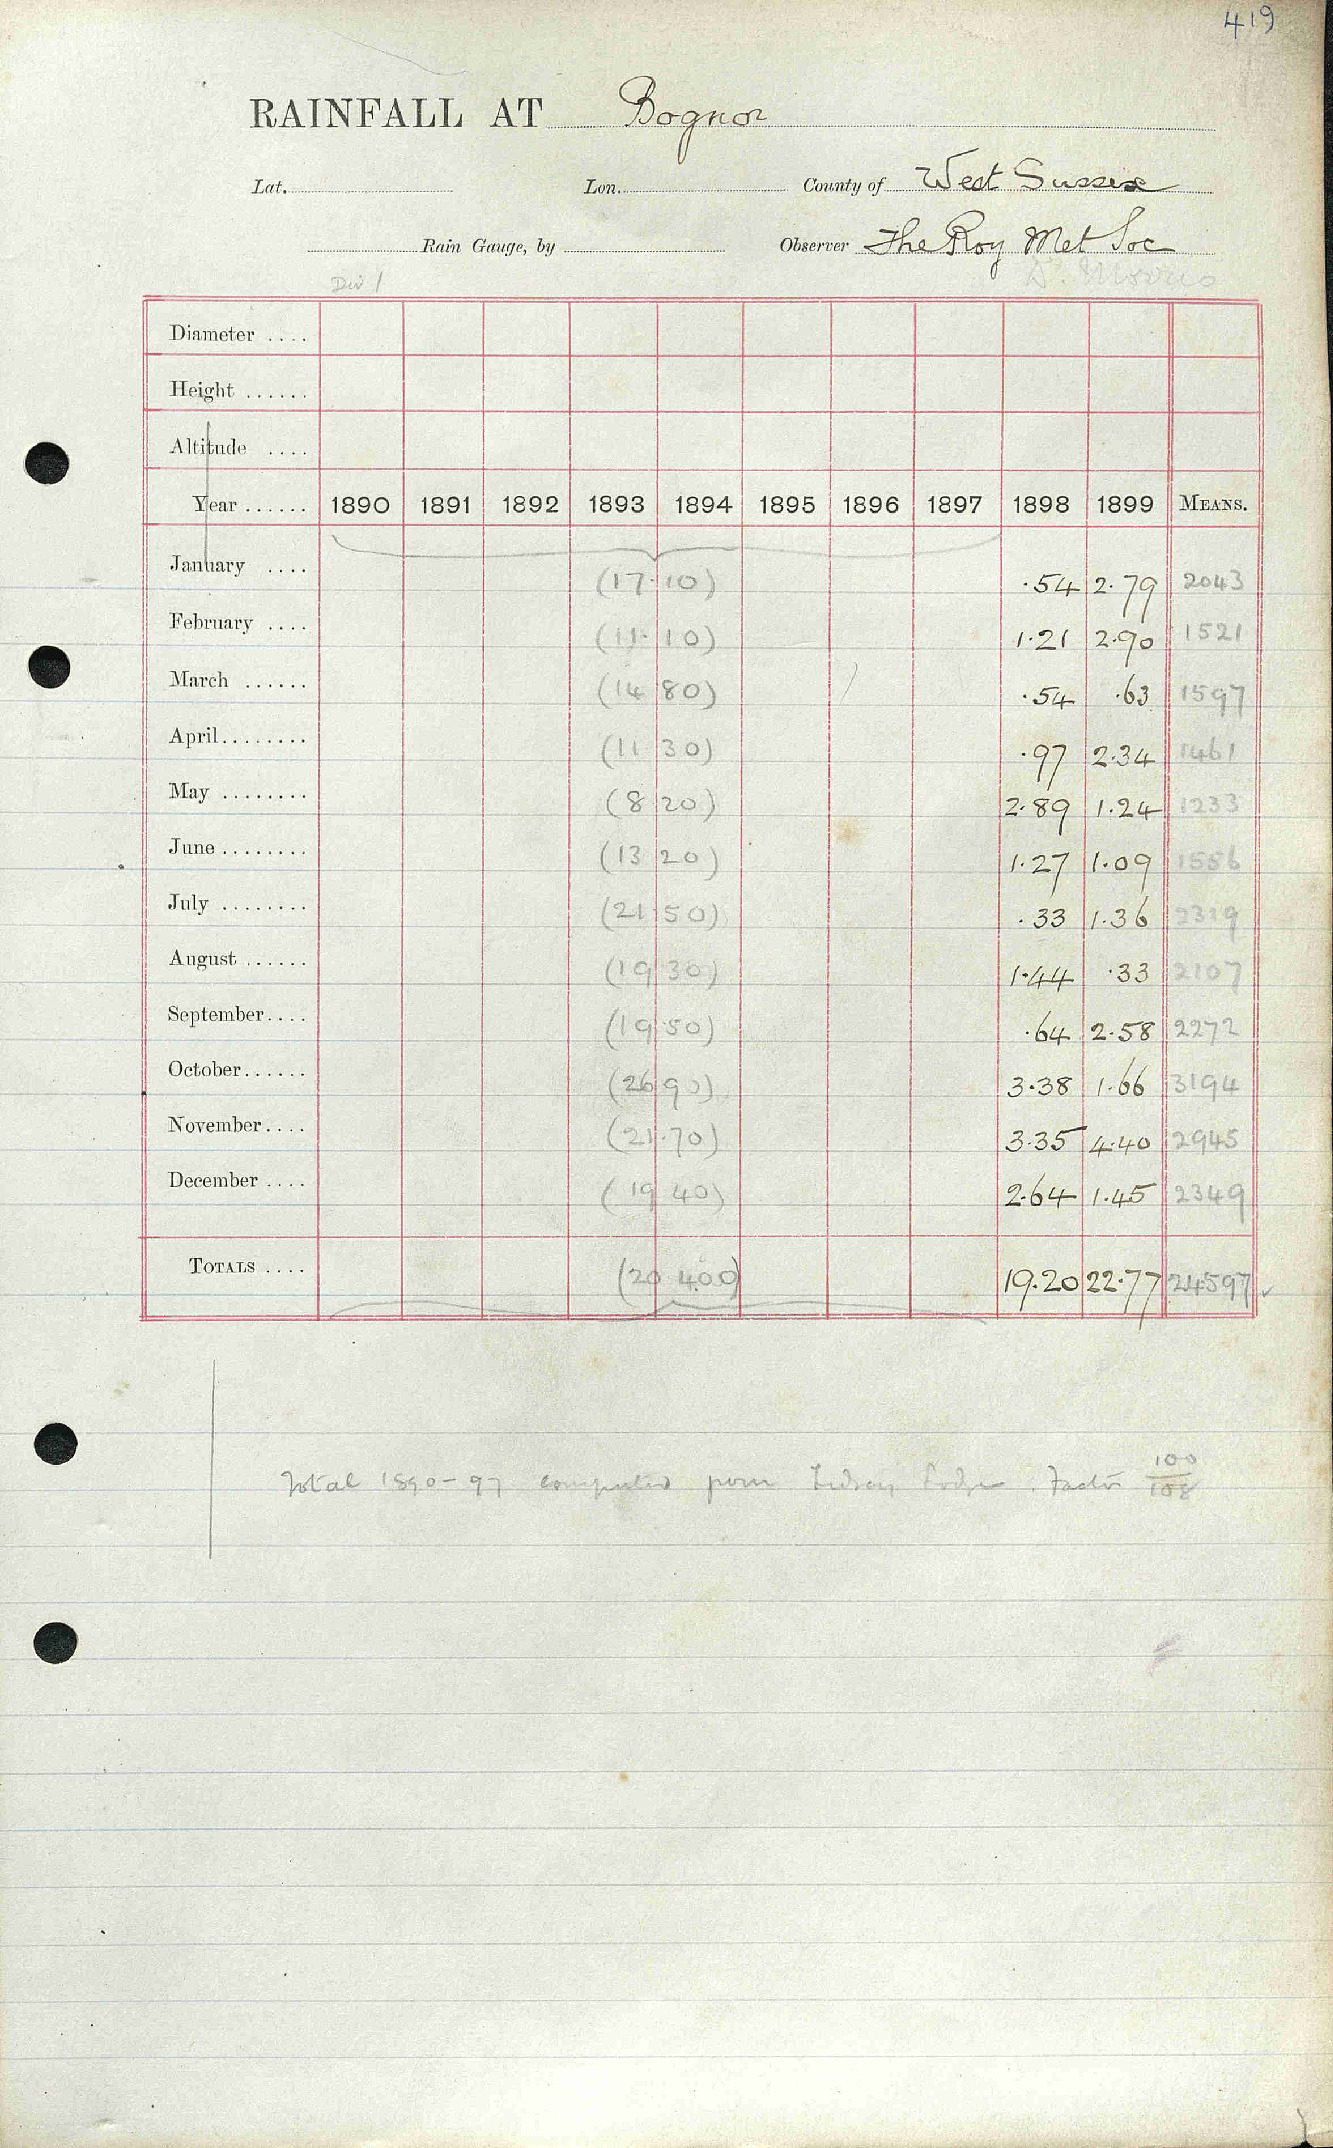 419
RAINFALL AT Bognor
Lat. Lon. County of West Sussex
Rain Gauge, by Observer The Roy Met Soc
Div 1
Diameter ....
Height ......
Altitude ....
Year ...... 1890 1891 1892 1893 1894 1895 1896 1897 1898 1899 MEANS.
January .... (17.10) .54 2.79 2043
February .... (11.10) 1.21 2.90 1521
March ...... (14 80) .54 .63 1597
April........ (11 30) .97 2.34 1461
May ........ (8 20) 2.89 1.24 1233
June ........ (13 20) 1.27 1.09 1556
July ........ (21 50) .33 1.36 2319
August ...... (19 30) 1.44 .33 2107
September.... (19 50) .64 2.58 2272
October...... (26 90) 3.38 1.66 3194
November.... (21.70) 3.35 4.40 2945
December .... (19 40) 2.64 1.45 2349
TOTALS .... (20 4.00) 19.20 22.77 24597 ✓
Total 1890-97 computed from Lidsey Lodge. Factor 100
108